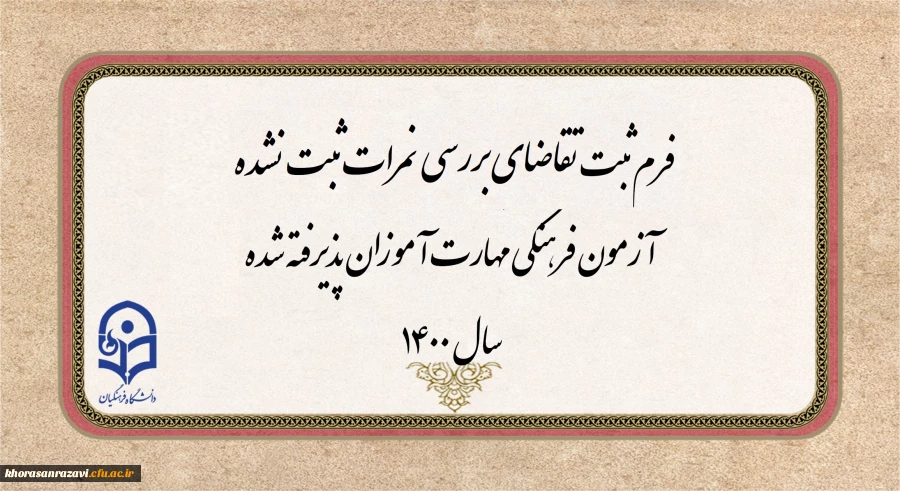 فرم ثبت تقاضای بررسی نمرات ثبت نشده
آزمون فرهنگی مهارت آموزان پذیرفته شده
سال ۱۴۰۰
دانشگاه فرهنگیان
khorasanrazavi.cfu.ac.ir